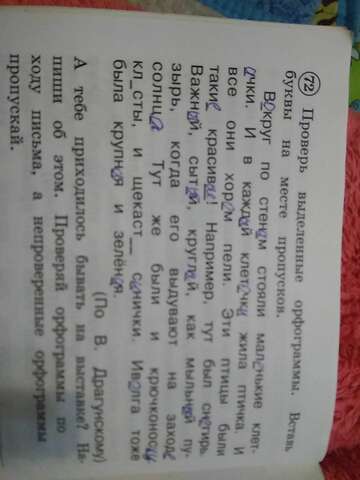 72 Проверь выделенные орфограммы. Вставь
буквы на месте пропусков.
Вокруг по стенам стояли маленькие клет-
ачки. И в каждай клеточки жила птичка. И
все они хором пели. Эти птицы были
такие красивые! Например, тут был снегирь.
Важный, сытый, круглай, как мыльнай пу-
зырь, когда его выдувают на заходе
солнца Тут же были и крючконосые
кл_сты, и щекаст__ синички. Иволга тоже
была крупная и зелёная.
(По В. Драгунскому)
А тебе приходилось бывать на выставке? На-
пиши об этом. Проверяй орфограммы по
ходу письма, а непроверенные орфограммы
пропускай.